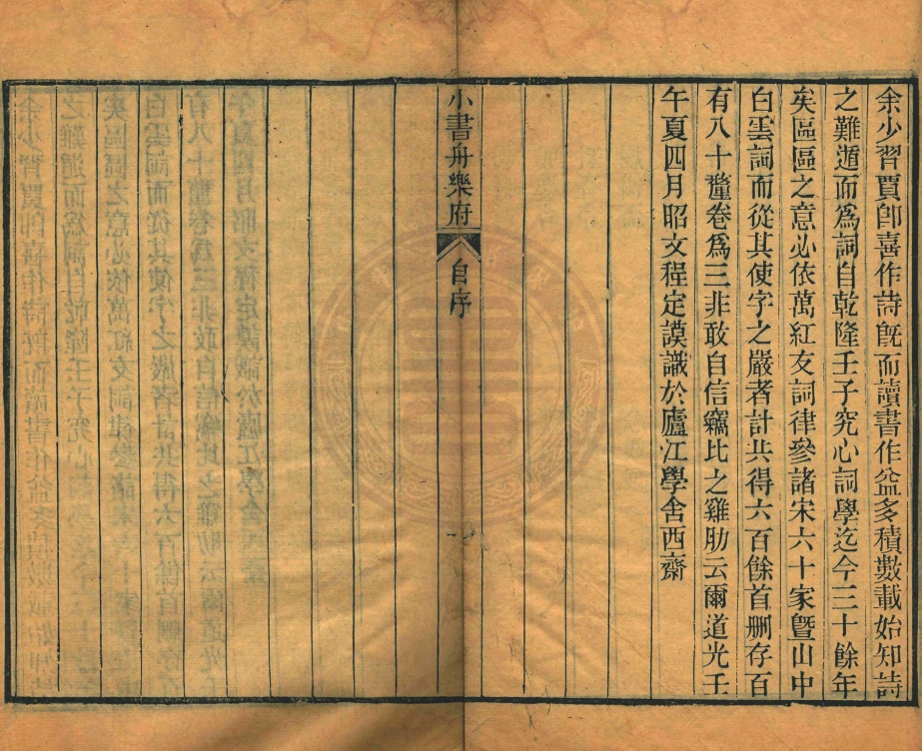 余少習賈卽喜作詩旣而讀書作益多積數載始知詩
之難遁而爲詞自乾隆壬子究心詞學迄今三十餘年
矣區區之意必依萬紅友詞律參諸宋六十家曁山中
白雲詞而從其使字之嚴者計共得六百餘首刪存百
有八十釐卷爲三非敢自信竊比之雞肋云爾道光壬
午夏四月昭文程定謨識於廬江學舍西齋
小書舟樂府 自序
一